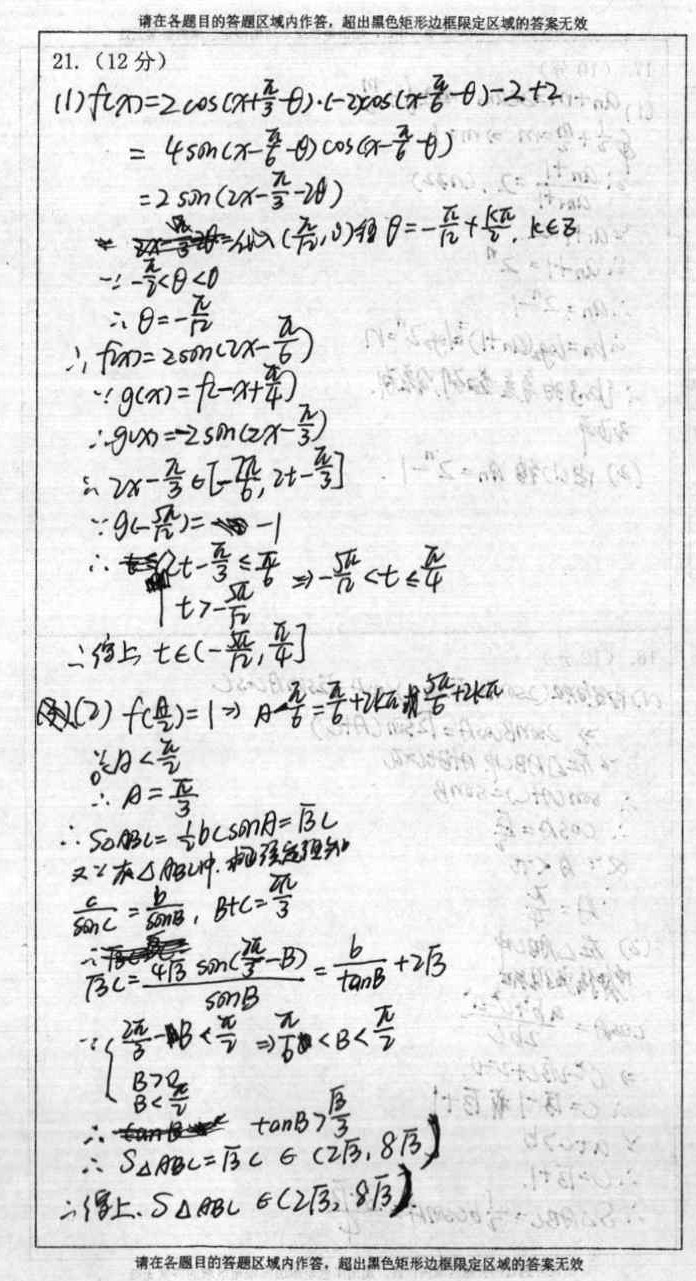 请在各题目的答题区域内作答，超出黑色矩形边框限定区域的答案无效
21.（12分）
(1) f(x)=2cos(x+π/3-θ)·(-2)cos(x-π/6-θ)-2+2
= 4sin(x-π/6-θ)cos(x-π/6-θ)
=2sin(2x-π/3-2θ)
代入(π/12,0)得 θ=-π/12+kπ/2, k∈Z
∵-π/2<θ<0
∴θ=-π/12
∴f(x)=2sin(2x-π/6)
∵g(x)=f(-x+π/4)
∴g(x)=-2sin(2x-π/3)
∴2x-π/3∈[-7π/6, 2t-π/3]
∵g(-5π/12)= -1
∴{2t-π/3≤π/6 ⇒-5π/12<t≤π/4
t>-5π/12
∴综上, t∈(-5π/12, π/4]
(2) f(A/2)=1⇒A-π/6=π/6+2kπ或5π/6+2kπ
∵0<A<π/2
∴A=π/3
∴S△ABC=1/2bcsinA=√3c
又∵在△ABC中,由正弦定理知
c/sinC=b/sinB, B+C=2π/3
√3c=4√3sin(2π/3-B)/sinB=b/tanB+2√3
∵{2π/3-B<π/2 ⇒π/6<B<π/2
B>0
B<π/2
∴tanB>√3/3
∴S△ABC=√3c∈(2√3, 8√3)
∴综上, S△ABC∈(2√3, 8√3)
请在各题目的答题区域内作答，超出黑色矩形边框限定区域的答案无效